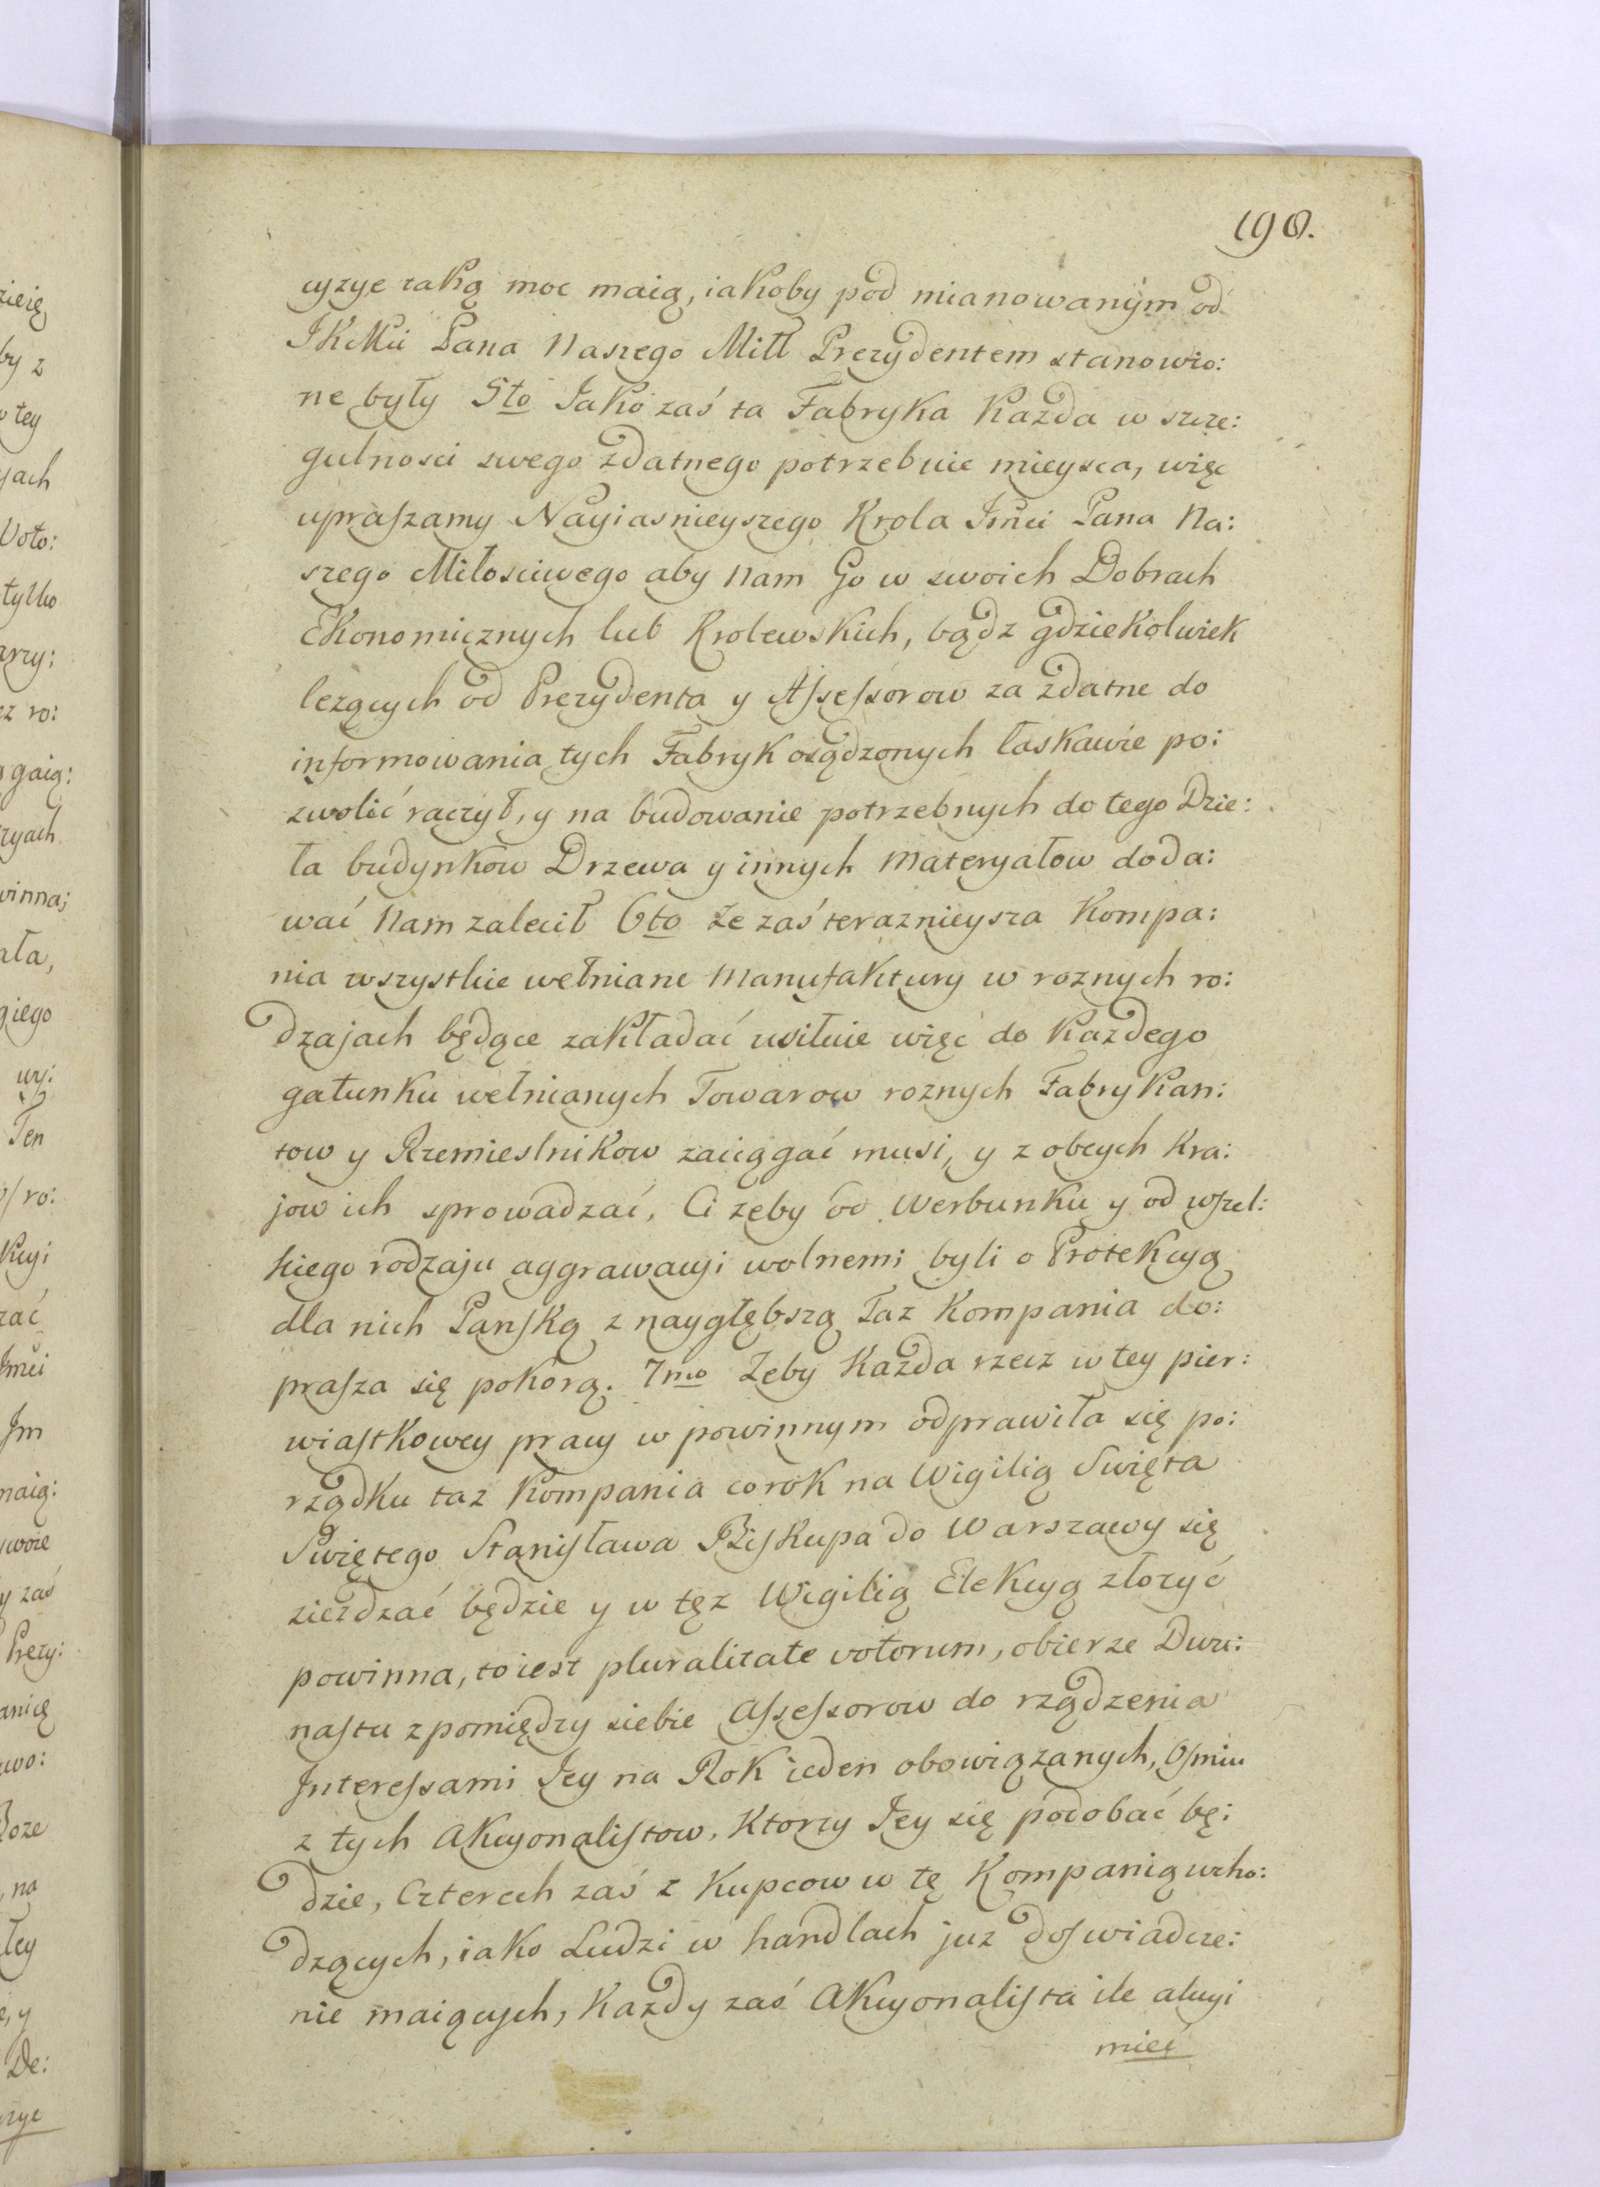 190.
cyzye taką moc maią, iakoby pod mianowanym od
JKMci Pana Naszego Miłł Prezydentem stanowio:
ne były 5to Jako zaś ta Fabryka Kazda w szcze:
gulnosci swego zdatnego potrzebuie mieysca, więc
upraszamy Nayiasnieyszego Krola Jmci Pana Na:
szego Miłosciwego aby Nam Go w swoich Dobrach
Ekonomicznych lub Krolewskich, bądz gdziekolwiek
lezących od Prezydenta y Assessorow za zdatne do
informowania tych Fabryk osądzonych łaskawie po:
zwolić raczył, y na budowanie potrzebnych do tego Dzie:
ła budynkow Drzewa y innych Materyałow doda:
wać Nam zalecił 6to Ze zaś teraznieysza Kompa:
nia wszystkie wełniane Manufaktury w roznych ro:
dzajach będące zakładać usiłuie więc do Kazdego
gatunku wełnianych Towarow roznych Fabrykan:
tow y Rzemieslnikow zaciągać musi, y z obcych Kra:
jow ich sprowadzać, Ci zeby od Werbunku y od wszel:
kiego rodzaju aggrawacyi wolnemi byli o Protekcyą
dla nich Panską z naygłębszą Taz Kompania do:
prasza się pokorą. 7mo Zeby Kazda rzecz w tey pier:
wiastkowey pracy w powinnym odprawiła się po:
rządku taz Kompania corok na Wigilią Swięta
Swiętego Stanisława Biskupa do Warszawy się
ziezdzać będzie y w tęz Wigilią Elekcyą złozyć
powinna, to iest pluralitate votorum, obierze Dwu:
nastu z pomiędzy siebie Assessorow do rządzenia
Interessami Jey na Rok ieden obowiązanych, Osmiu
z tych Akcyonalistow, Ktorzy Jey się podobać bę:
dzie, Czterech zaś z Kupcow w tę Kompanią wcho:
dzących, iako Ludzi w handlach juz doswiadcze:
nie maiących, Kazdy zaś Akcyonalista ile akcyi
mieć